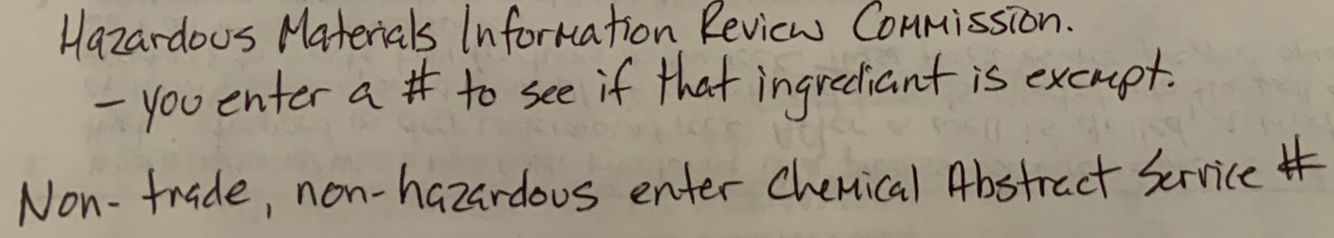 Hazardous Materials Information Review Commission.
- you enter a # to see if that ingrediant is exempt.
Non-trade, non-hazardous enter Chemical Abstract Service #